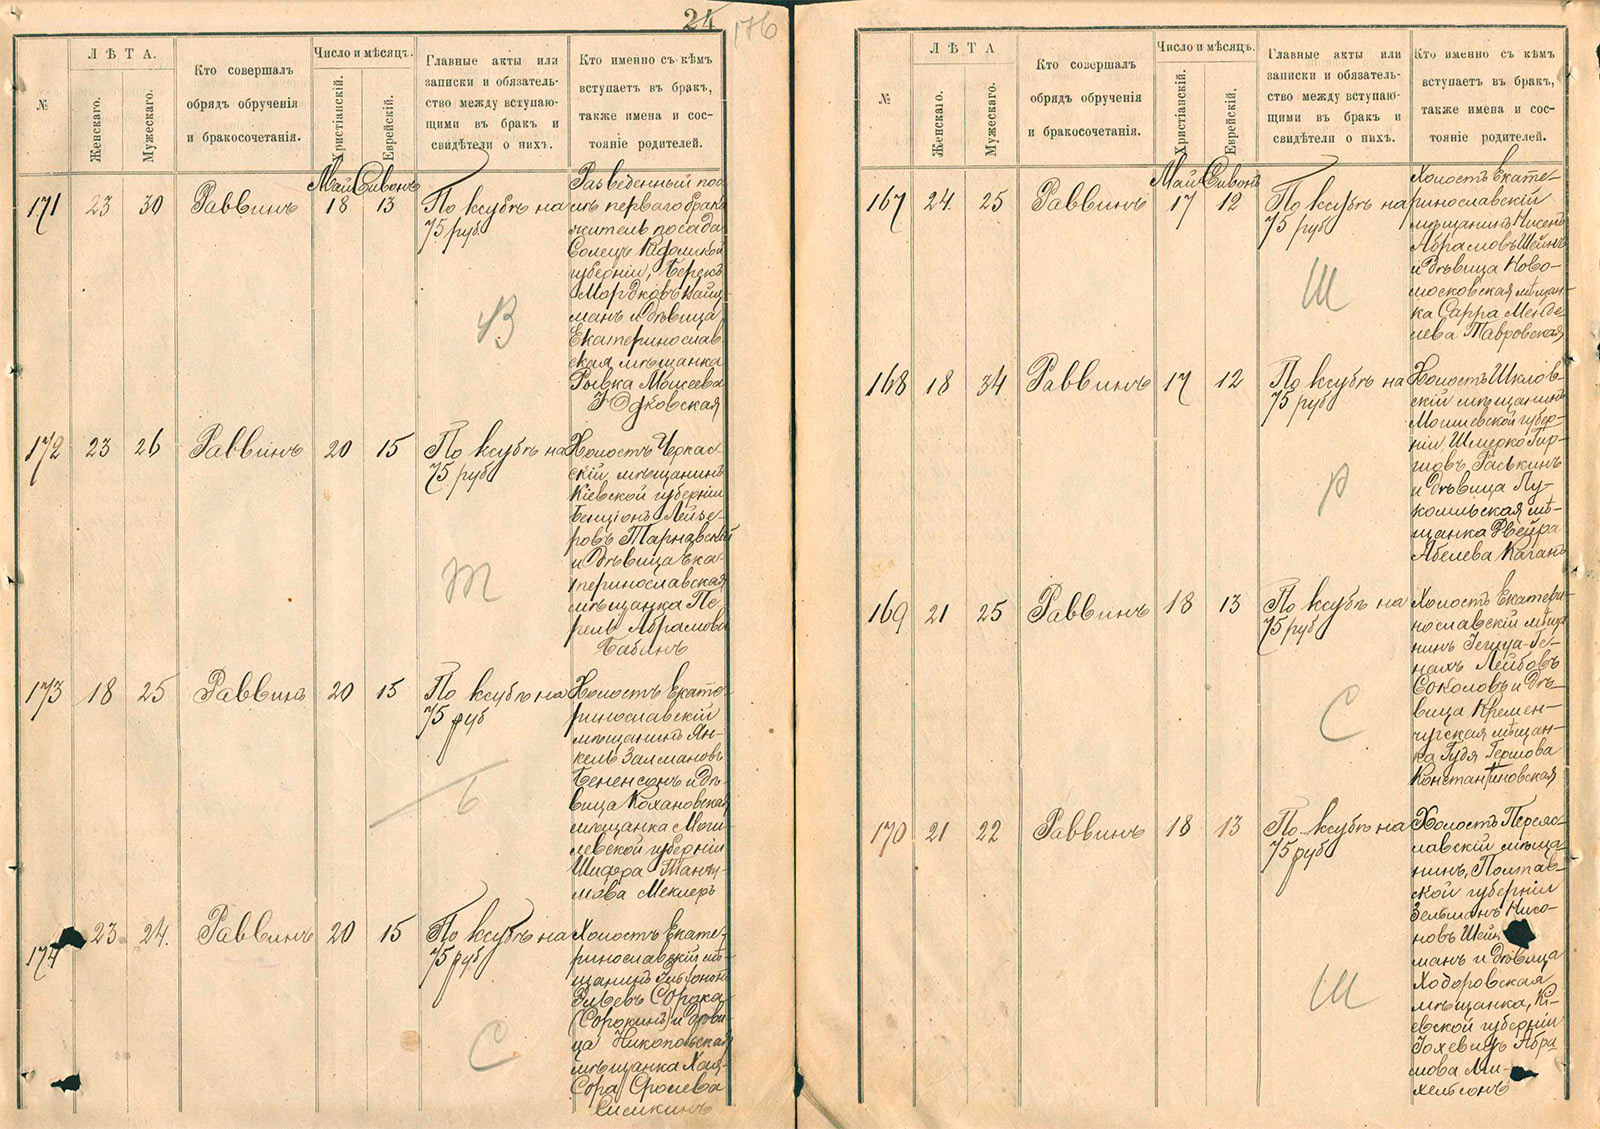 24
176
№
ЛѢТА.
Женскаго.
Мужескаго.
Кто совершалъ
обрядъ обрученія
и бракосочетанія.
Число и мѣсяцъ.
Христіанскій.
Еврейскій.
Главные акты или
записки и обязатель-
ство между вступаю-
щими въ бракъ и
свидѣтели о нихъ.
Кто именно съ кѣмъ
вступаетъ въ бракъ,
также имена и сос-
тояніе родителей.
171
23
30
Раввинъ
Май
18
Сивонъ
13
По ксубѣ на
75 руб
В
Разведенный пос-
лѣ перваго брака
житель посада
Солецъ
губерніи, Берекъ
Мордковъ
манъ и дѣвица
Екатеринослав
ская мѣщанка
Рывка Моисеева
Юдковская
172
23
26
Раввинъ
20
15
По ксубѣ на
75 руб
Т
Холостъ Черкас-
скій мѣщанинъ
Кіевской губерніи
Бенціонъ Лейзе-
ровъ Тарнавскій
и дѣвица Ека-
теринославская
мѣщанка Пе-
рель Абрамова
Бабинъ
173
18
25
Раввинъ
20
15
По ксубѣ на
75 руб
Б
Холостъ Екате-
ринославскій
мѣщанинъ Ян-
кель Залмановъ
Бененсонъ и дѣ-
вица Кохановская
мѣщанка Моги-
левской губерніи
Шифра
Меклеръ
174
23
24.
Раввинъ
20
15
По ксубѣ на
75 руб
С
Холостъ Екате-
ринославскій мѣ-
щанинъ
Сорока
(Сорокинъ) и дѣви-
ца Никопольская
мѣщанка Хая-
Сора Сролева
Сишкинъ
№
ЛѢТА
Женскаго.
Мужескаго.
Кто совершалъ
обрядъ обрученія
и бракосочетанія.
Число и мѣсяцъ.
Христіанскій.
Еврейскій.
Главные акты или
записки и обязатель-
ство между вступаю-
щими въ бракъ и
свидѣтели о нихъ.
Кто именно съ кѣмъ
вступаетъ въ бракъ,
также имена и сос-
тояніе родителей.
167
24.
25
Раввинъ
Май
17
Сивонъ
12
По ксубѣ на
75 руб
Ш
Холостъ Екате-
ринославскій
мѣщанинъ Нисенъ
Абрамовъ Шейнъ
и дѣвица Ново-
московская мѣщан-
ка Сарра Менде-
лева Тавровская
168
18
34
Раввинъ
17
12
По ксубѣ на
75 руб
Р
Холостъ Шклов-
скій мѣщанинъ
Могилевской губер-
ніи Шмерко Гир-
шовъ Раськинъ
и дѣвица Лу-
комльская мѣ-
щанка Фейра
Абелева Каганъ
169
21
25
Раввинъ
18
13
По ксубѣ на
75 руб
С
Холостъ Екатери-
нославскій мѣща
нинъ Іегуда-Ге-
нахъ Лейбовъ
Соколовъ и дѣ-
вица Кремен-
чугская мѣщан-
ка Гудя Гершова
Константиновская
170
21
22
Раввинъ
18
13
По ксубѣ на
75 руб
Ш
Холостъ Переяс-
лавскій мѣща-
нинъ, Полтав-
ской губерніи
Зельманъ Нисо-
новъ Шейн
манъ и дѣвица
Ходоровская
мѣщанка, Кі-
евской губерніи
Іохевидъ Абра
мова Ми-
хельсонъ